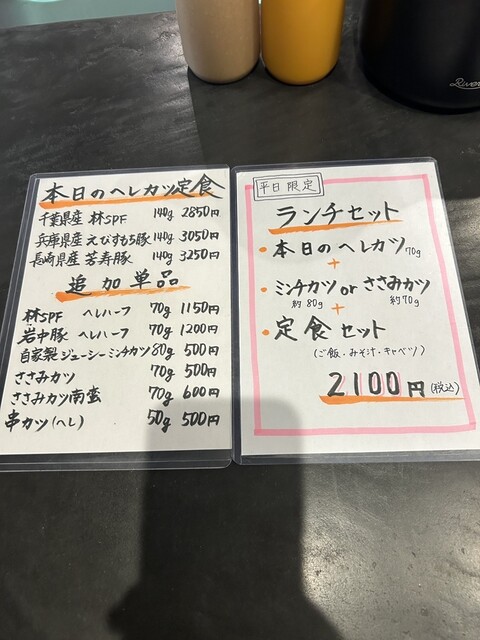 本日のヘレカツ定食
千葉県産 林SPF 140g 2850円
兵庫県産 えびすもち豚 140g 3050円
長崎県産 芳寿豚 140g 3250円
追加単品
林SPF ヘレハーフ 70g 1150円
岩中豚 ヘレハーフ 70g 1200円
自家製ジューシーミンチカツ 80g 500円
ささみカツ 70g 500円
ささみカツ南蛮 70g 600円
串カツ(ヘレ) 50g 500円
平日限定
ランチセット
・本日のヘレカツ 70g
+
・ミンチカツ or ささみカツ
約80g 約70g
+
・定食セット
(ご飯・みそ汁・キャベツ)
2100円(税込)